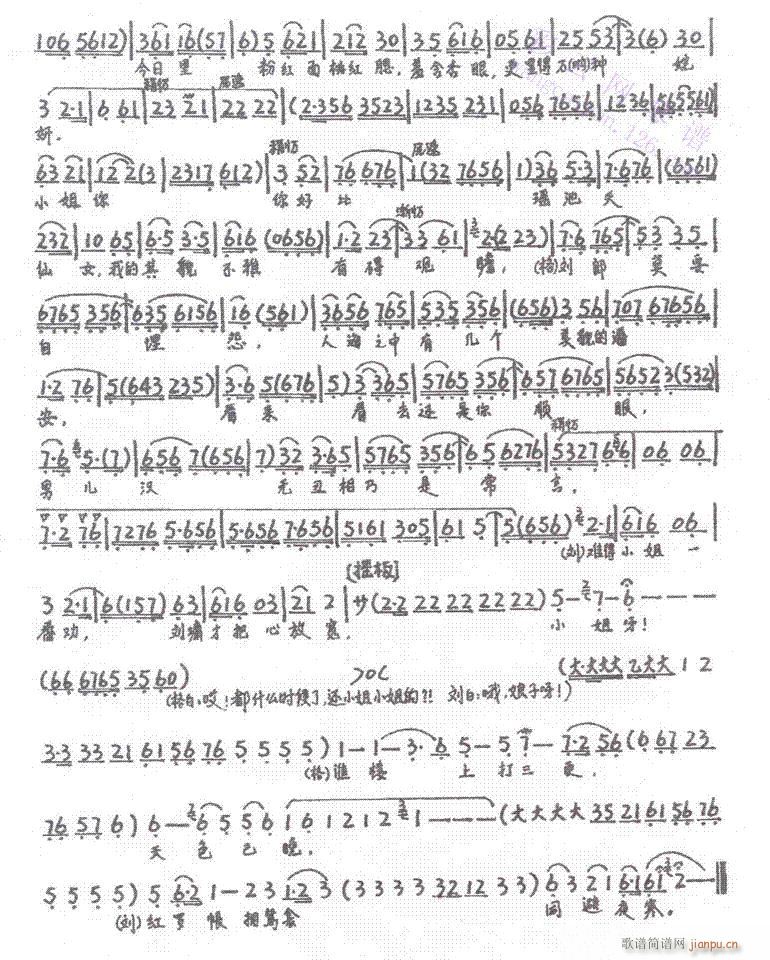 106 5612) | 361 16(57 | 6) 5 621 | 212 30 | 35 616 | 05 61 | 25 53 | 3(6) 30 |
今日里 粉红面桃红腮，羞含杏眼，更显得万(哟)种 娇
3 2·1 | 6 61 | 23 21 | 22 22 | (2·356 3523 | 1235 231 | 056 7656 | 1236 | 565561) |
妍。
63 21 | 12 2(3 | 2317 612) | 3 52 | 76 676 | 1(32 7656 | 1) 36 5·3 | 7·676 | (6561)
小姐你 你好比 瑶池天
232 | 10 65 | 6·5 3·5 | 616 (0656) | 1·2 23 | 33 61 | 2(2 23) | 7·6 765 | 53 35 |
仙女，我的其貌不雅 有得观瞻，(梧)刘郎 莫要
6765 356 | 635 6156 | 16 (561) | 3656 765 | 535 356 | (656) 3 56 | 707 67656 |
自 埋怨，人海之中有几个 美貌的潘
1·2 76 | 5(643 235) | 3·6 5(676 | 5) 3 365 | 5765 356 | 657 6765 | 5652 3(532)
安，看来 看去还是你 顺 眼，
7·6 5·(7) | 656 7(656 | 7) 32 3·65 | 5765 356 | 65 6276 | 5327 6 6 | 06 06 |
男儿汉 无丑相乃 是 常 言。
7·2 76 | 7276 5·656 | 5·656 7·656 | 5161 305 | 61 5 | 5(656) 2·1 | 616 06 |
(刘)难得小姐 一
[摇板]
3 2·1 | 6(157) 63 | 616 03 | 21 2 | サ (2·2 22 22 22 22) 5 - 7 - 6 - - -
番劝，刘痛才把心放宽。 小 姐呀！
(66 6765 35 60) (大·大大大 乙大大 1 2
(梧白：哎！都什么时候了，还小姐小姐的?! 刘白：哦，娘子呀！)
3·3 33 21 61 56 76 5 5 5 5) 1 - 1 - 3· 6 5 - 5 7 - 7·2 56 (6 67 23
(梧)谁楼 上打三更，
76 57 6) 6 - 6 5 5 6 1 6 1 2 1 2 1 - - - (大 大 大 大 35 21 61 56 76
天 色 已 晚，
5 5 5 5) 5 6·2 1 - 2 3 1·2 3 (3 3 3 3 32 12 3 3) 6 3 2 1 6·1 61 2 -
(刘)红罗帐 鸳衾 同避夜寒。
歌谱简谱网 jianpu.cn